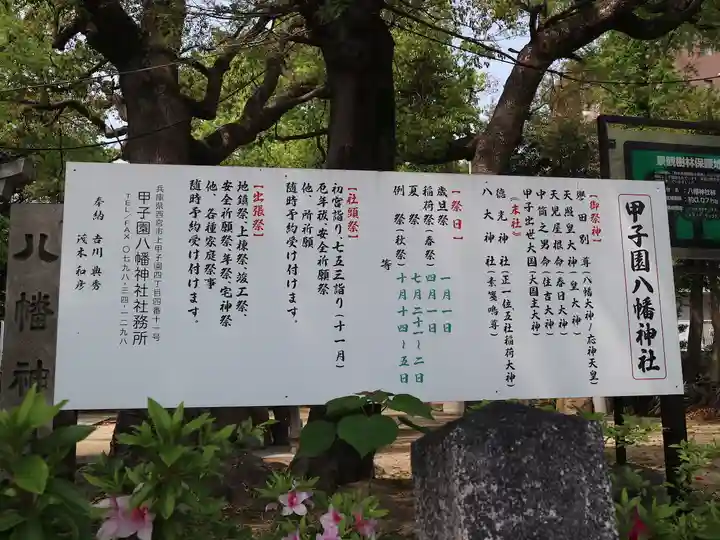 甲子園八幡神社
【御祭神】
譽田別尊(八幡大神/応神天皇)
天照皇大神(皇大神)
天児屋根命(春日大神)
中筒之男命(住吉大神)
甲子出世大国(大国主大神)
《末社》
徳光神社(正一位五社稲荷大神)
八大神社(素盞嗚尊)
【祭日】
歳旦祭 一月一日
稲荷祭(春祭) 四月一日
夏祭 七月二十一〜二日
例祭(秋祭) 十月十四〜五日
等
【社頭祭】
初宮詣り、七五三詣り(十一月)
厄年祓、安全祈願祭
他、所祈願
随時予約受け付けます。
【出張祭】
地鎮祭、上棟祭、竣工祭、
安全祈願祭、年祭、宅神祭
他、各種家庭祭事
随時予約受け付けます。
兵庫県西宮市上甲子園四丁目四番十一号
甲子園八幡神社社務所
TEL/FAX 〇七九八-三四-一二九八
奉納 吉川興秀
茂木和彦
八幡神